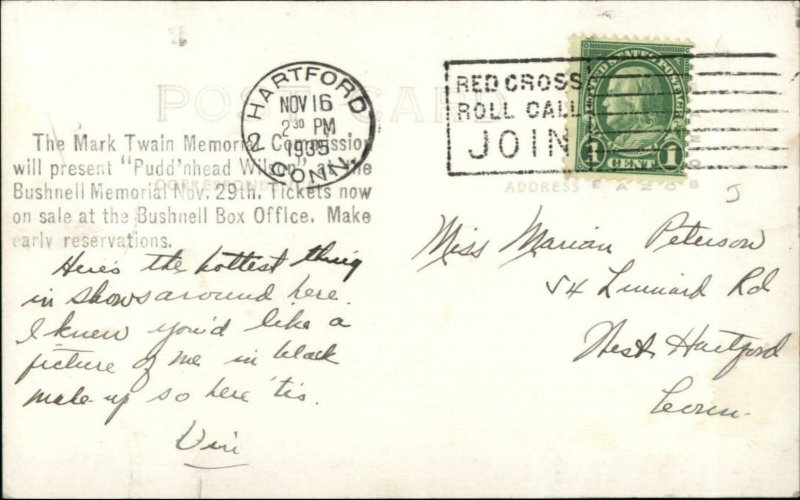 POST CARD
HARTFORD
NOV 16
2 30 PM
1935
CONN.
2
RED CROSS
ROLL CALL
JOIN
UNITED STATES POSTAGE
1 CENT 1
The Mark Twain Memorial Commission
will present "Pudd'nhead Wilson", at the
Bushnell Memorial Nov. 29th. Tickets now
on sale at the Bushnell Box Office. Make
early reservations.
CORRESPONDENCE
ADDRESS
Here's the hottest thing
in shows around here.
I knew you'd like a
picture of me in black
make-up so here 'tis.
Vin
Miss Marian Peterson
54 Linnard Rd
West Hartford
Conn.